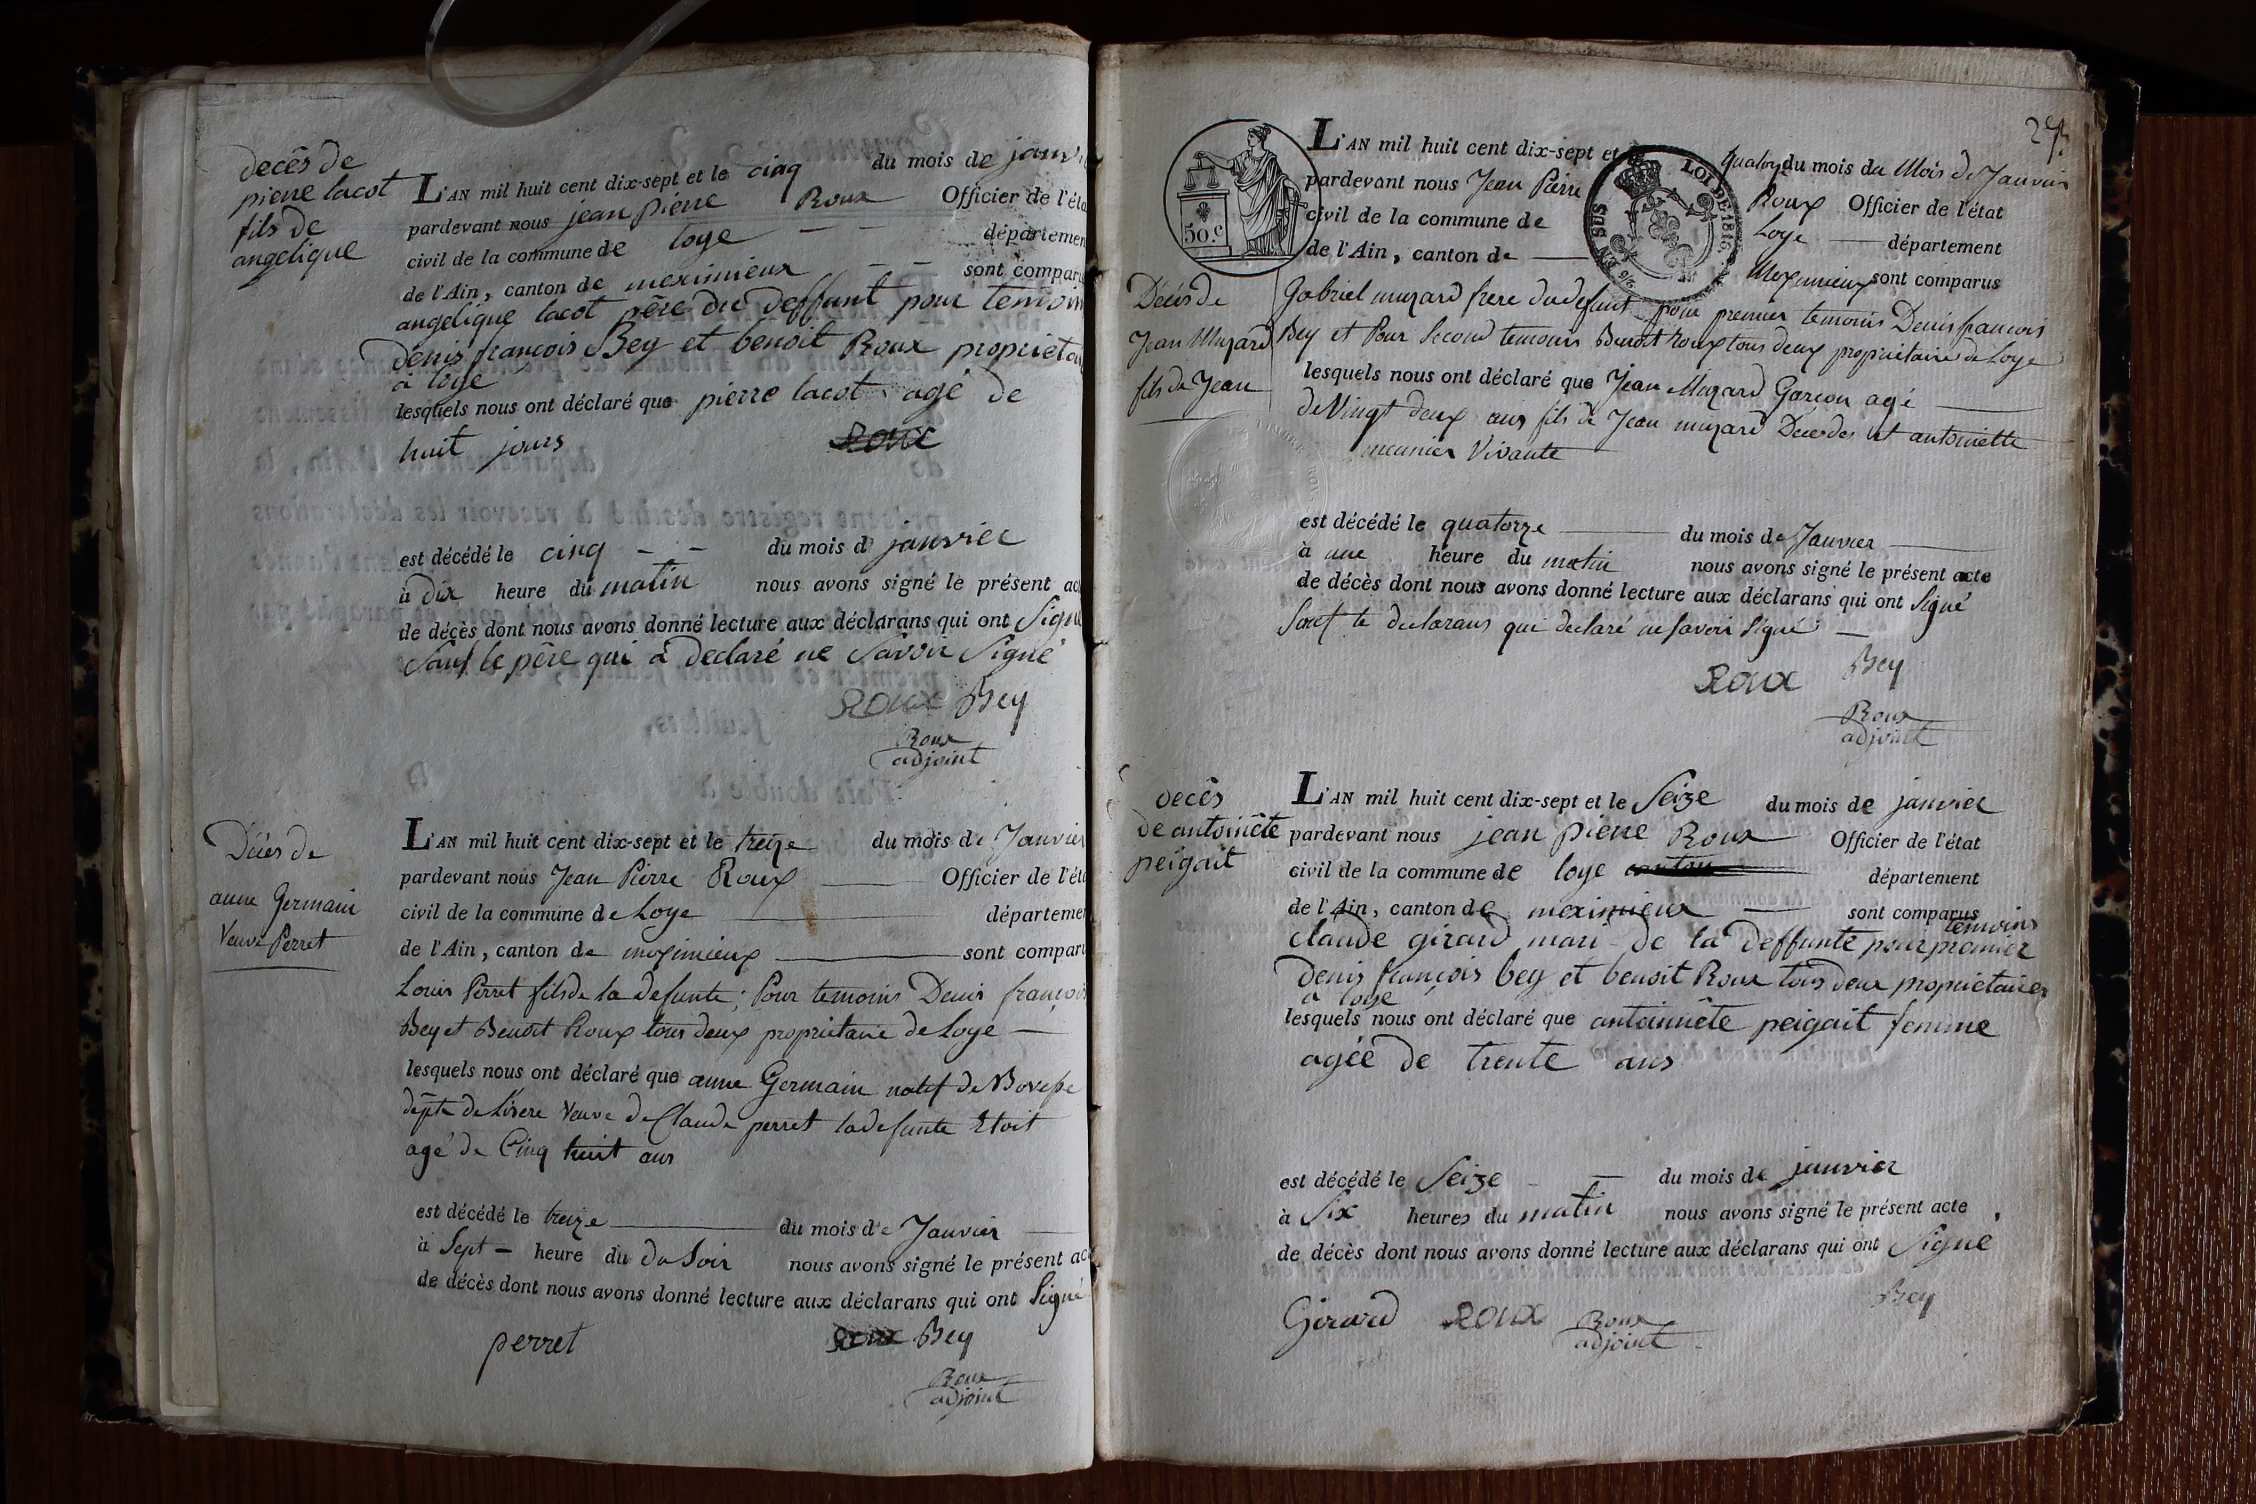 decês de
pierre lacot
fils de
angelique
L'AN mil huit cent dix-sept et le cinq du mois de janvi
pardevant nous jean pierre Roux Officier de l'éta
civil de la commune de loye — — départemen
de l'Ain, canton de meximieux — — sont comparu
angelique lacot père du deffunt pour temoin
denis françois Bey et benoit Roux proprieta
à loye
lesquels nous ont déclaré que pierre lacot agé de
huit jours
Roux
est décédé le cinq — — du mois d janvier
à dix heure du matin nous avons signé le présent ac
de décès dont nous avons donné lecture aux déclarans qui ont Signé
Sauf le père qui à declaré ne Savoir Signé
Roux Bey
Roux
adjoint
Décès de
anne Germain
Veuve Perret
L'AN mil huit cent dix-sept et le treize du mois de Janvier
pardevant nous Jean Pierre Roux — Officier de l'éta
civil de la commune de Loye — départemen
de l'Ain, canton de meximieux — sont comparu
Louis Perret fils de la defunte; Pour temoins Denis françois
Bey et Benoit Roux tous deux proprietaire de Loye —
lesquels nous ont déclaré que anne Germain natif de
dépte de Lisere Veuve de Claude perret la defunte Etoit
agé de Cinq huit ans
est décédé le treize — du mois de Janvier —
à Sept — heure du du Soir nous avons signé le présent ac
de décès dont nous avons donné lecture aux déclarans qui ont Signé
perret Roux Bey
Roux
adjoint
L'AN mil huit cent dix-sept et le quatorze du mois du Mois de Janvier
pardevant nous Jean Pierre Roux Officier de l'état
civil de la commune de Loye — département
de l'Ain, canton de — Meximieux sont comparus
50.c
LOI DE 1816.
EN SUS
Décès de
Jean Muzard
fils de Jean
Gabriel muzard frere du defunt pour premier temoins Denis francois
Bey et Pour Second temoins Benoit Roux tous deux proprietaire de Loye
lesquels nous ont déclaré que Jean Muzard Garcon agé —
de Vingt deux ans fils de Jean muzard Décédés et antoinette
meunier Vivante
est décédé le quatorze — du mois de Janvier —
à une heure du matin nous avons signé le présent acte
de décès dont nous avons donné lecture aux déclarans qui ont Signé
Sauf le declarans qui declaré ne Savoir Signé —
Roux Bey
Roux
adjoint
decês
de antoinête
peigait
L'AN mil huit cent dix-sept et le Seize du mois de janvier
pardevant nous jean pierre Roux Officier de l'état
civil de la commune de loye canton département
de l'Ain, canton de meximieux — sont comparus
temoins
claude girard mari de la deffunte pour premier
denis françois bey et benoit Roux tous deux proprietaires
a loye
lesquels nous ont déclaré que antoinnête peigait femme
agée de trente ans
est décédé le Seize — du mois de janvier
à Six heures du matin nous avons signé le présent acte
de décès dont nous avons donné lecture aux déclarans qui ont Signé
Bey
Girard Roux Roux
adjoint